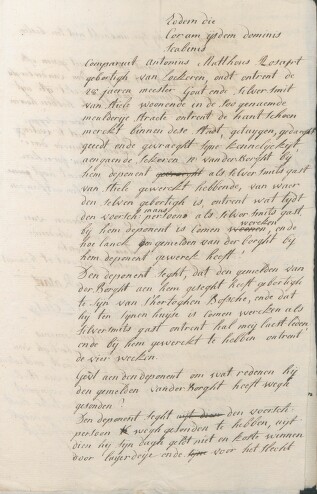 Eodem die
Coram ijsdem dominis
Scabinis
Compareert antonius Mattheus
geboortigh van Lockeren, oudt ontrent de
28 jaeren meester Gout ende selversmit
van stiele woonende in de soo genaemde
straete ontrent de handtschoen
merckt binnen dese stadt, getuygen, gedaeght
geeedt ende gevraeght sijne kennelyckheyt,
aengaende sekeren N: vanderBorght bij
hem deponent gewrocht als selversmits gast
van stiele gewerckt hebbende, van waer
den selven geboortigh is, ontrent wat tijdt
den voorsch: persoone als selversmits gast
bij hem deponent is comen woonen, ende
hoe lanck den gemelden van der borght bij
hem deponent gewerckt heeft?
Den deponent seght, dat den gemelden van
der Borght aen hem geseght heeft geboortigh
te sijn van S'hertoghen Bossche, ende dat
hij tin sijnen huyse is comen wercken als
selversmits gast ontrent half meij laest leden
ende bij hem gewerckt te hebben ontrent
de vier weeken
aen den deponent om wat redenen hij
den gemelden vander Borght heeft wegh
gesonden?
Den deponent seght den voorsch:
persoon wegh gesonden te hebben, uijt
dien hij sijn dagh geldt niet en koste winnen
door luyerdeye ende voor het slecht